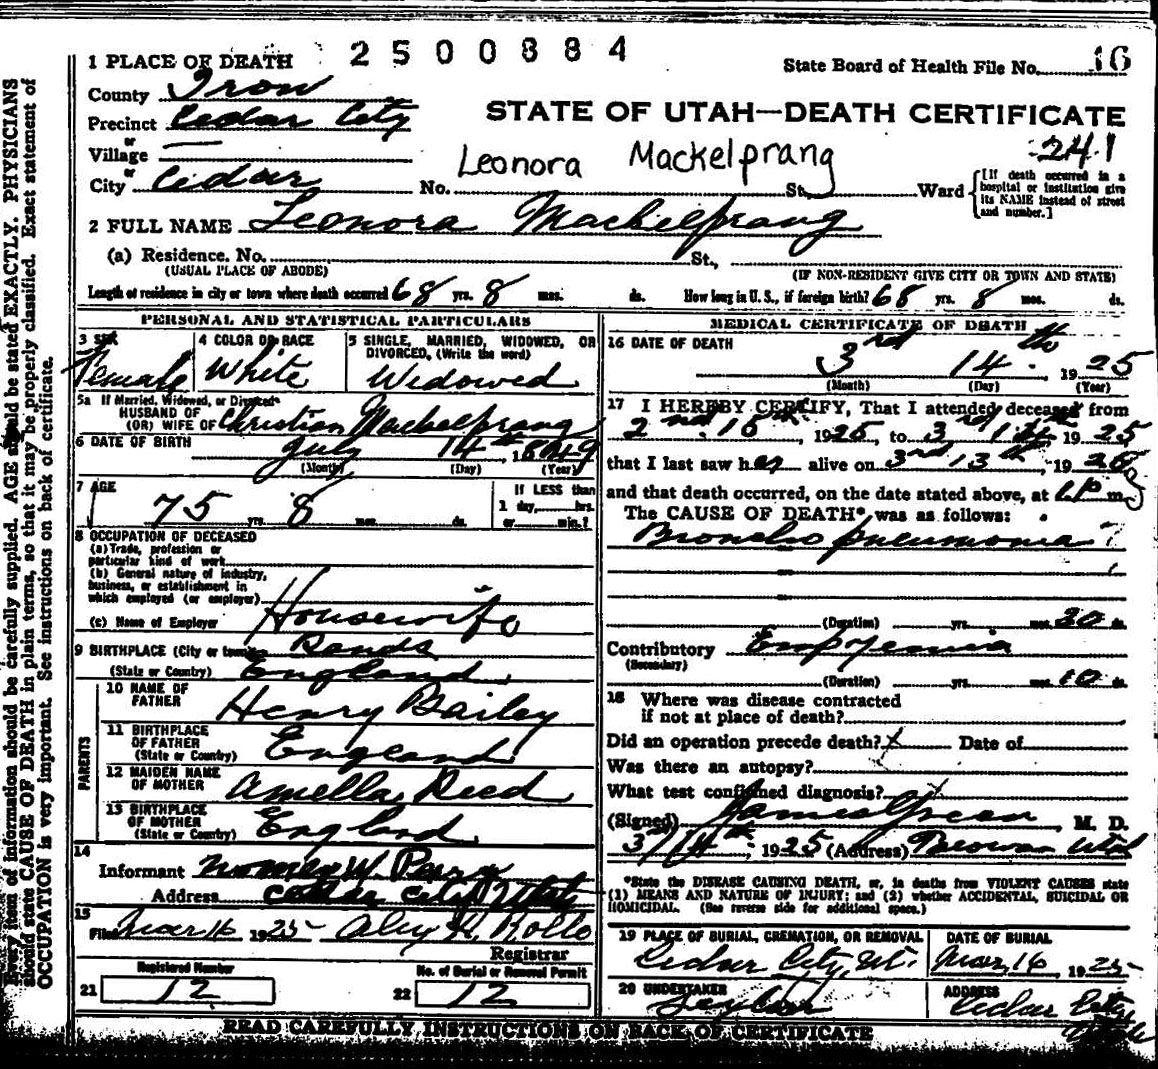 2500884
1 PLACE OF DEATH
State Board of Health File No. 16
County Iron
STATE OF UTAH—DEATH CERTIFICATE
Precinct Cedar City
or
Village —
241
Leonora Mackelprang
or
City Cedar No. St. Ward
[If death occurred in a hospital or institution give its NAME instead of street and number.]
2 FULL NAME Leonora Mackelprang
(a) Residence. No. St.,
(USUAL PLACE OF ABODE) (IF NON-RESIDENT GIVE CITY OR TOWN AND STATE)
Length of residence in city or town where death occurred 68 yrs. 8 mos. ds. How long in U. S., if foreign birth? 68 yrs. 8 mos. ds.
PERSONAL AND STATISTICAL PARTICULARS
3 SEX 4 COLOR OR RACE 5 SINGLE, MARRIED, WIDOWED, OR
DIVORCED, (Write the word)
Female White Widowed
5a If Married, Widowed, or Divorced
HUSBAND OF
(OR) WIFE OF Christian Mackelprang
6 DATE OF BIRTH
July 14th, 1849
(Month) (Day) (Year)
7 AGE
If LESS than
75 yrs. 8 mos. ds.
1 day, hrs.
or min.?
8 OCCUPATION OF DECEASED
(a) Trade, profession or
particular kind of work
(b) General nature of industry,
business, or establishment in
which employed (or employer)
Housewife
(c) Name of Employer
9 BIRTHPLACE (City or town)
(State or Country) England
PARENTS
10 NAME OF
FATHER Henry Bailey
11 BIRTHPLACE
OF FATHER
(State or Country) England
12 MAIDEN NAME
OF MOTHER Amella Reed
13 BIRTHPLACE
OF MOTHER
(State or Country) England
14
Informant W.
Address Cedar City, Utah
15
Filed Mar 16 1925 H. Rollo
Registrar
Registered Number No. of Burial or Removal Permit
21 12 22 12
MEDICAL CERTIFICATE OF DEATH
16 DATE OF DEATH
3rd 14th 1925
(Month) (Day) (Year)
17 I HEREBY CERTIFY, That I attended deceased from
2nd 15th, 1925, to 3rd 1925
that I last saw her alive on 3rd 13th, 1925
and that death occurred, on the date stated above, at m.
The CAUSE OF DEATH* was as follows:
Broncho pneumonia
(Duration) yrs. mos. ds.
Contributory Empyemia
(Secondary)
(Duration) yrs. mos. 10 ds.
18 Where was disease contracted
if not at place of death?
Did an operation precede death? X Date of
Was there an autopsy?
What test confirmed diagnosis?
(Signed) , M. D.
3/14th, 1925 (Address) Utah
*State the DISEASE CAUSING DEATH, or, in deaths from VIOLENT CAUSES state
(1) MEANS AND NATURE OF INJURY; and (2) whether ACCIDENTAL, SUICIDAL OR
HOMICIDAL. (See reverse side for additional space.)
19 PLACE OF BURIAL, CREMATION, OR REMOVAL DATE OF BURIAL
Cedar City, Ut. Mar, 16 1925
20 UNDERTAKER ADDRESS
Cedar City
READ CAREFULLY INSTRUCTIONS ON BACK OF CERTIFICATE
Every item of information should be carefully supplied. AGE should be stated EXACTLY. PHYSICIANS
should state CAUSE OF DEATH in plain terms, so that it may be properly classified. Exact statement of
OCCUPATION is very important. See instructions on back of certificate.